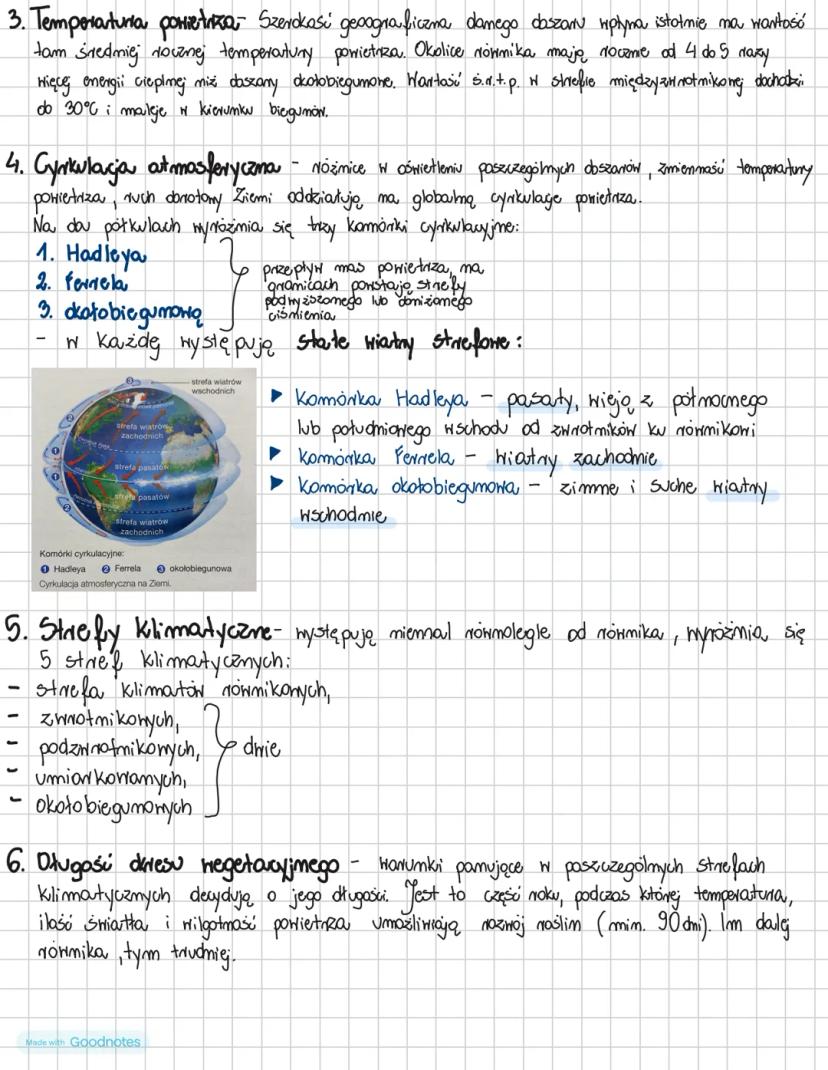 3. Temperatura powietrza - Szerokość geograficzna danego obszaru wpływa istotnie na wartość
tam średniej rocznej temperatury powietrza. Okolice równika mają rocznie od 4 do 5 razy
więcej energii cieplnej niż obszary okołobiegunowe. Wartość ś.r.t.p. w strefie międzyzwrotnikowej dochodzi
do 30°C i maleje w kierunku biegunów.
4. Cyrkulacja atmosferyczna - różnice w oświetleniu poszczególnych obszarów, zmienność temperatury
powietrza, ruch obrotowy Ziemi oddziałują na globalną cyrkulację powietrza.
Na obu półkulach wyróżnia się trzy komórki cyrkulacyjne:
1. Hadleya
2. Ferrela
3. okołobiegunową
przepływ mas powietrza, na
granicach powstają strefy
podwyższonego lub obniżonego
ciśnienia
- w każdej występują stałe wiatry strefowe:
strefa wiatrów
wschodnich
strefa wiatrów
zachodnich
strefa pasatów
strefa pasatów
strefa wiatrów
zachodnich
Komórki cyrkulacyjne:
1 Hadleya 2 Ferrela 3 okołobiegunowa
Cyrkulacja atmosferyczna na Ziemi.
▶ Komórka Hadleya - pasaty, wieją z północnego
lub południowego wschodu od zwrotników ku równikowi
▶ Komórka Ferrela - wiatry zachodnie
▶ Komórka okołobiegunowa - zimne i suche wiatry
wschodnie
5. Strefy klimatyczne - występują niemal równolegle od równika, wyróżnia się
5 stref klimatycznych:
- strefa klimatów równikowych,
- zwrotnikowych,
- podzwrotnikowych,
- umiarkowanych,
- okołobiegunowych
dwie
6. Długość okresu wegetacyjnego - warunki panujące w poszczególnych strefach
klimatycznych decydują o jego długości. Jest to część roku, podczas której temperatura,
ilość światła i wilgotność powietrza umożliwiają rozwój roślin (min. 90 dni). Im dalej
równika, tym trudniej.
Made with Goodnotes